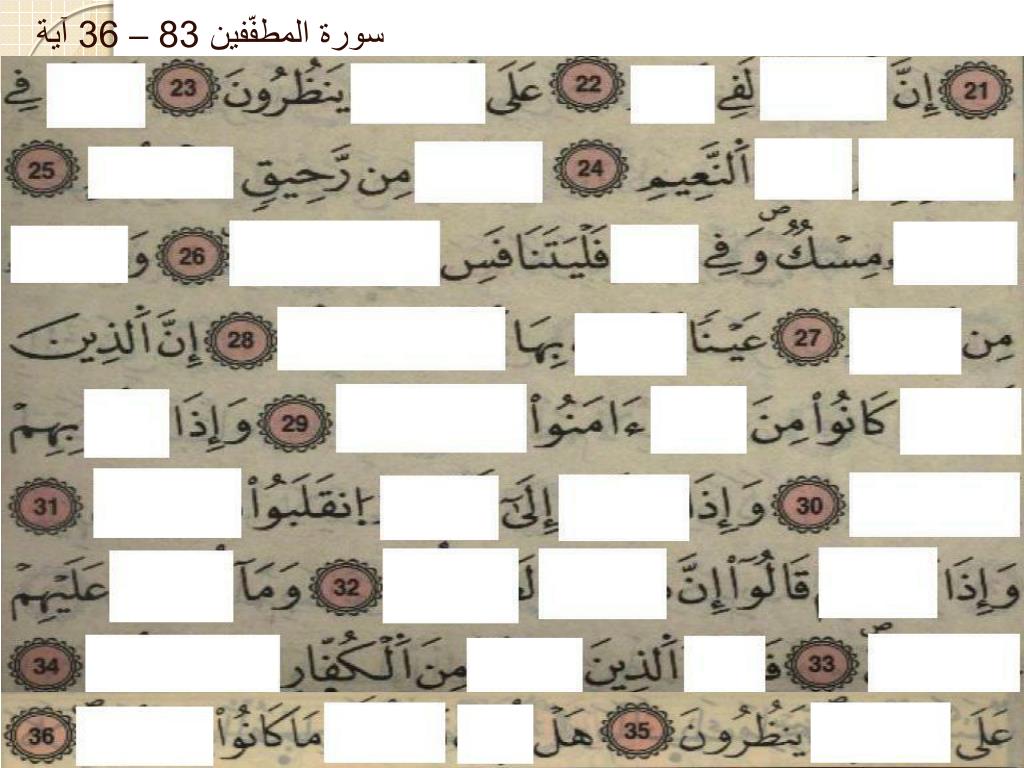 سورة المطفّفين 83 – 36 آية
21 إِنَّ لَفِے 22 عَلَى يَنظُرُونَ 23 فِے
اَلنَّعِيمِ 24 مِن رَّحِيقٍ 25
مِسْكٌ وَفِے فَلْيَتَنَافَسِ 26 وَ
مِن 27 عَيْناً بِهَا 28 إِنَّ اَلذِينَ
كَانُواْ مِنَ ءَامَنُواْ 29 وَإِذَا بِهِمْ
30 وَإِذَا إِلَىٰٓ اِنقَلَبُواْ 31
وَإِذَا قَالُوٓاْ إِنَّ 32 وَمَآ عَلَيْهِمْ
33 فَ اَلذِينَ مِنَ اَلْكُفّارِ 34
عَلَى يَنظُرُونَ 35 هَلْ مَا كَانُواْ 36